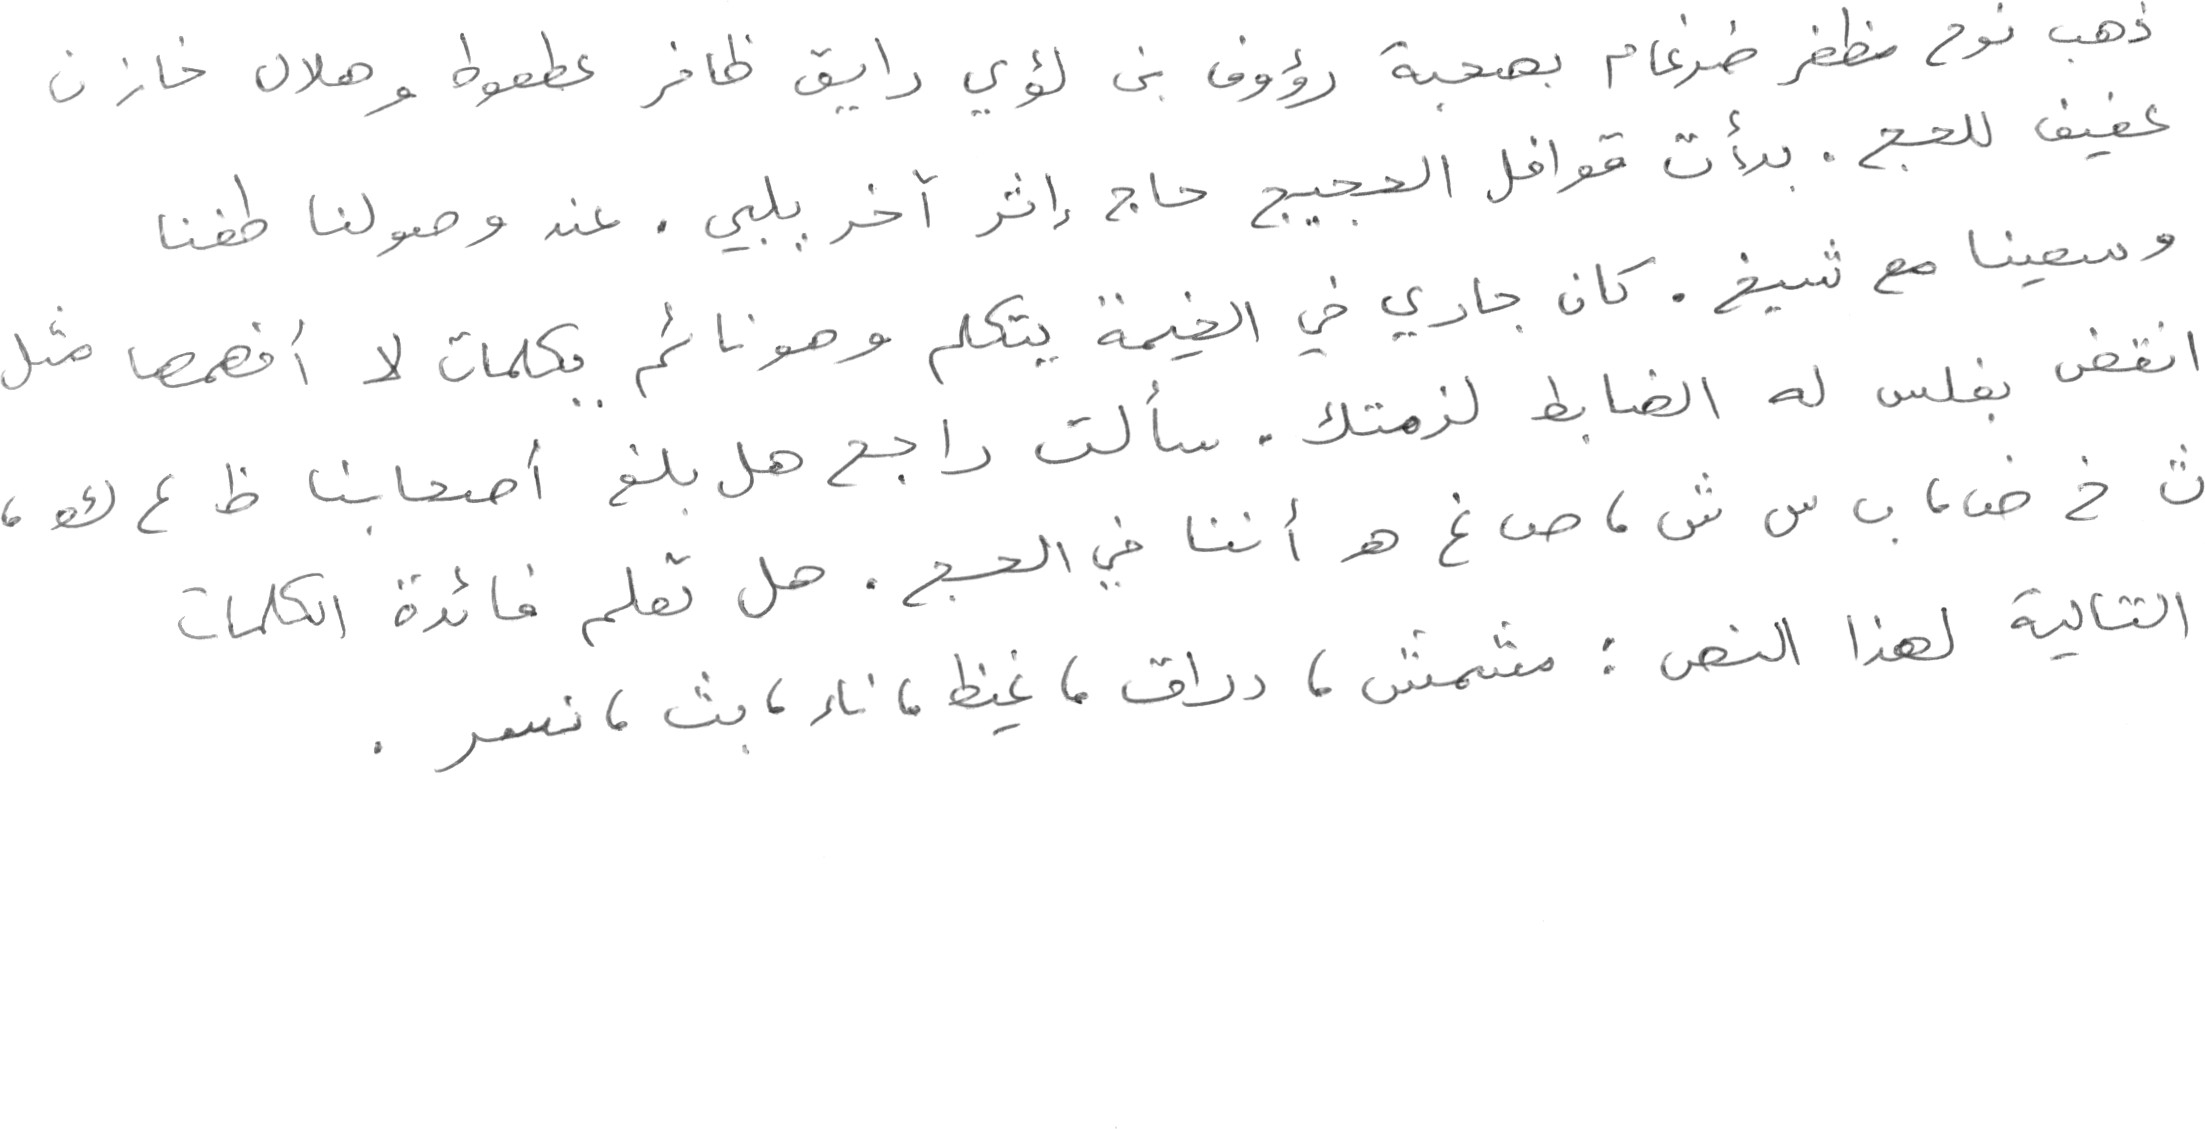 ذهب نوح مظفر ضرغام بصحبة رؤوف بن لؤي رايق ظافر عطعوط وهلال خازن
عفيف للحج . بدأت قوافل الحجيج حاج إثر آخر يلبي . عند وصولنا طفنا
وسعينا مع شيخ . كان جاري في الخيمة يتكلم وهو نائم بكلمات لا أفهمها مثل
انقض بفلس له الضابط لزمتك . سألت راجح هل بلغ أصحابنا ظ ع ك ،
ث خ ض ، ب س ش ، ص غ هـ أننا في الحج . هل تعلم فائدة الكلمات
التالية لهذا النص : مشمش ، دراق ، غيظ ، ناء ، بث ، نسر .